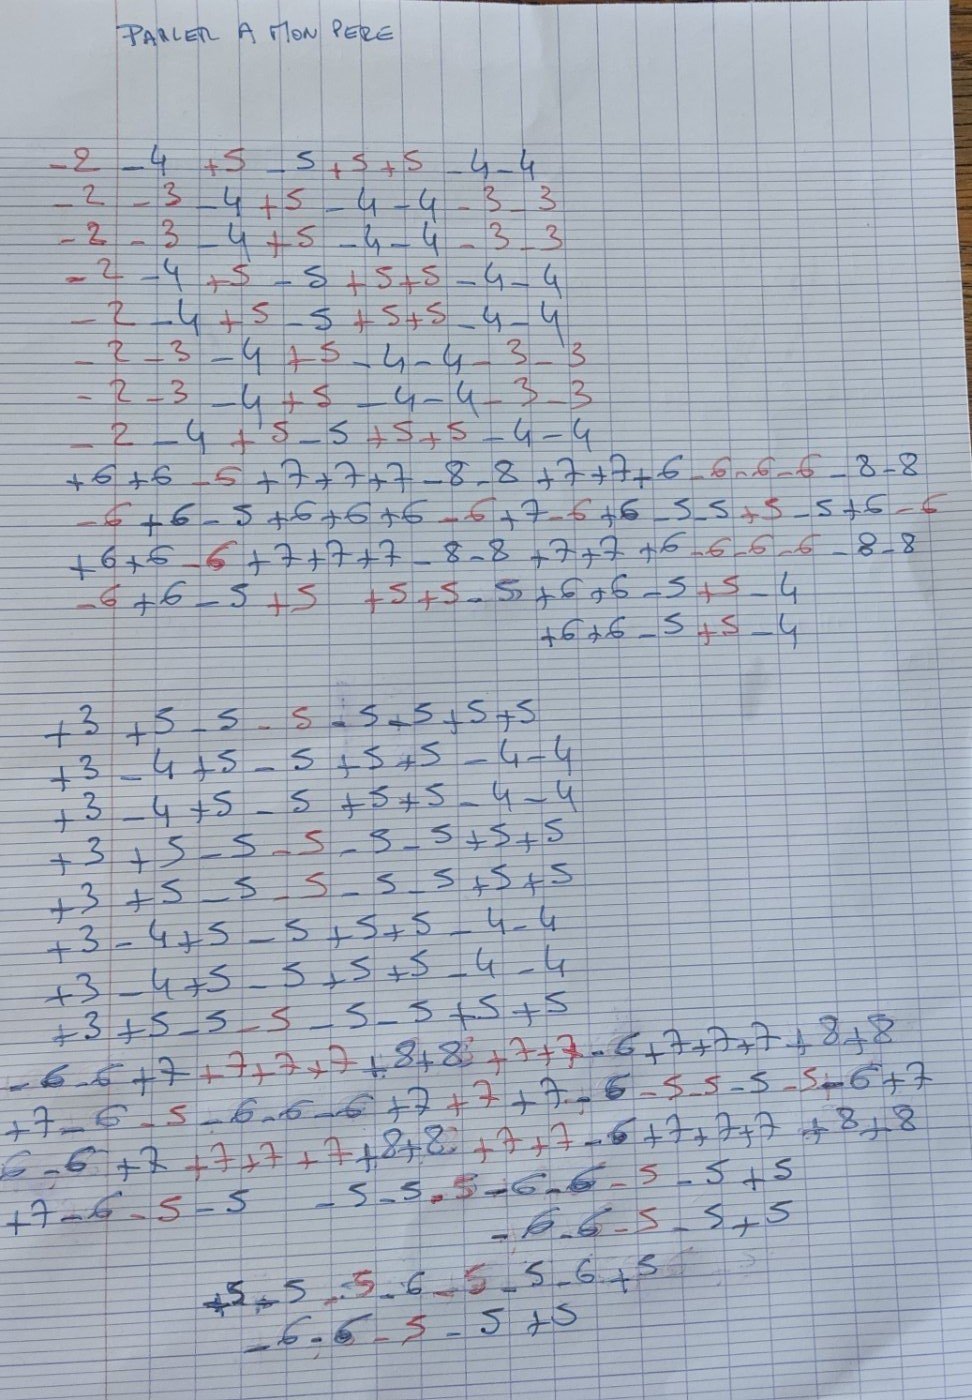 PARLER A MON PERE
-2 -4 +5 -5 +5 +5 -4 -4
-2 -3 -4 +5 -4 -4 -3 -3
-2 -3 -4 +5 -4 -4 -3 -3
-2 -4 +5 -5 +5 +5 -4 -4
-2 -4 +5 -5 +5 +5 -4 -4
-2 -3 -4 +5 -4 -4 -3 -3
-2 -3 -4 +5 -4 -4 -3 -3
-2 -4 +5 -5 +5 +5 -4 -4
+6 +6 -6 +7 +7 +7 -8 -8 +7 +7 +6 -6 -6 -6 -8 -8
-6 +6 -5 +6 +6 +6 -6 +7 -6 +6 -5 -5 +5 -5 +6 -6
+6 +6 -6 +7 +7 +7 -8 -8 +7 +7 +6 -6 -6 -6 -8 -8
-6 +6 -5 +5 +5 +5 -5 +6 +6 -5 +5 -4
+6 +6 -5 +5 -4
+3 +5 -5 -5 -5 +5 +5 +5
+3 -4 +5 -5 +5 +5 -4 -4
+3 -4 +5 -5 +5 +5 -4 -4
+3 +5 -5 -5 -5 -5 +5 +5
+3 +5 -5 -5 -5 -5 +5 +5
+3 -4 +5 -5 +5 +5 -4 -4
+3 -4 +5 -5 +5 +5 -4 -4
+3 +5 -5 -5 -5 -5 +5 +5
-6 -6 +7 +7 +7 +7 +8 +8 +7 +7 -6 +7 +7 +7 +8 +8
+7 -6 -5 -6 -6 -6 +7 +7 +7 -6 -5 -5 -5 -5 -6 +7
6 -6 +7 +7 +7 +7 +8 +8 +7 +7 -6 +7 +7 +7 +8 +8
+7 -6 -5 -5 -5 -5 -5 -6 -6 -5 -5 +5
-6 -6 -5 -5 +5
+5 -5 -5 -6 -5 -5 -6 +5
-6 -6 -5 -5 +5